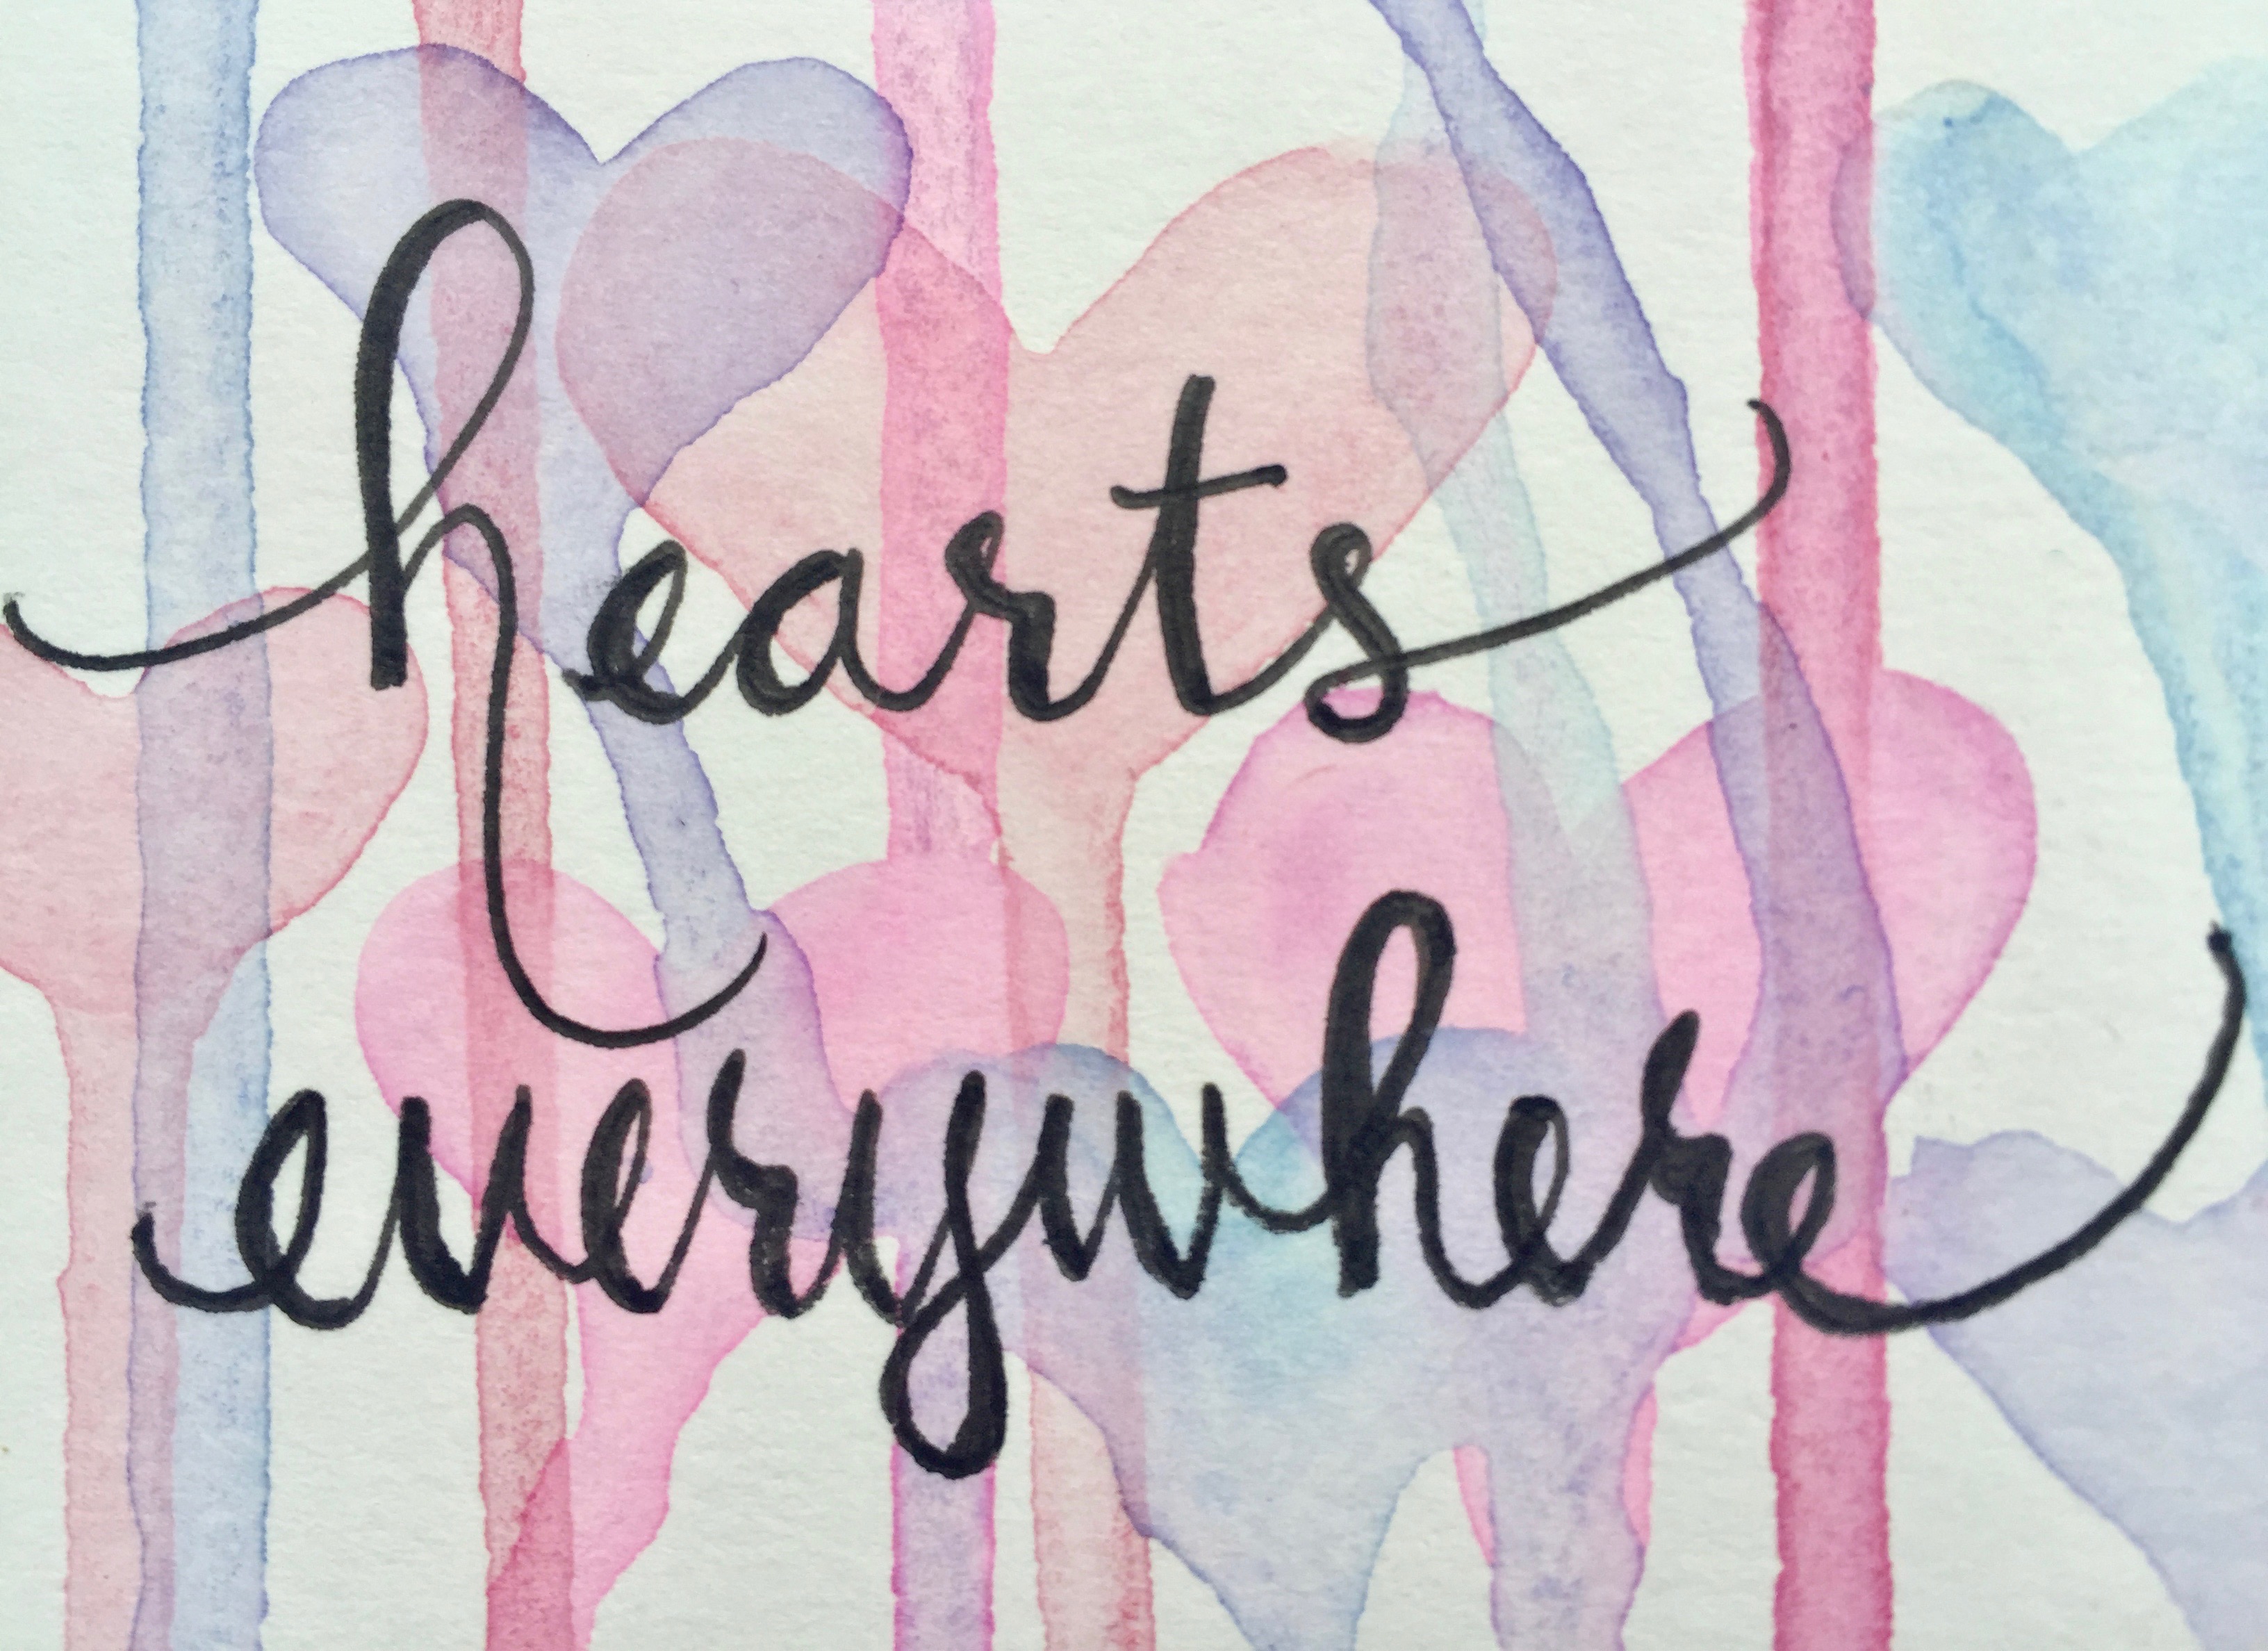 hearts
everywhere